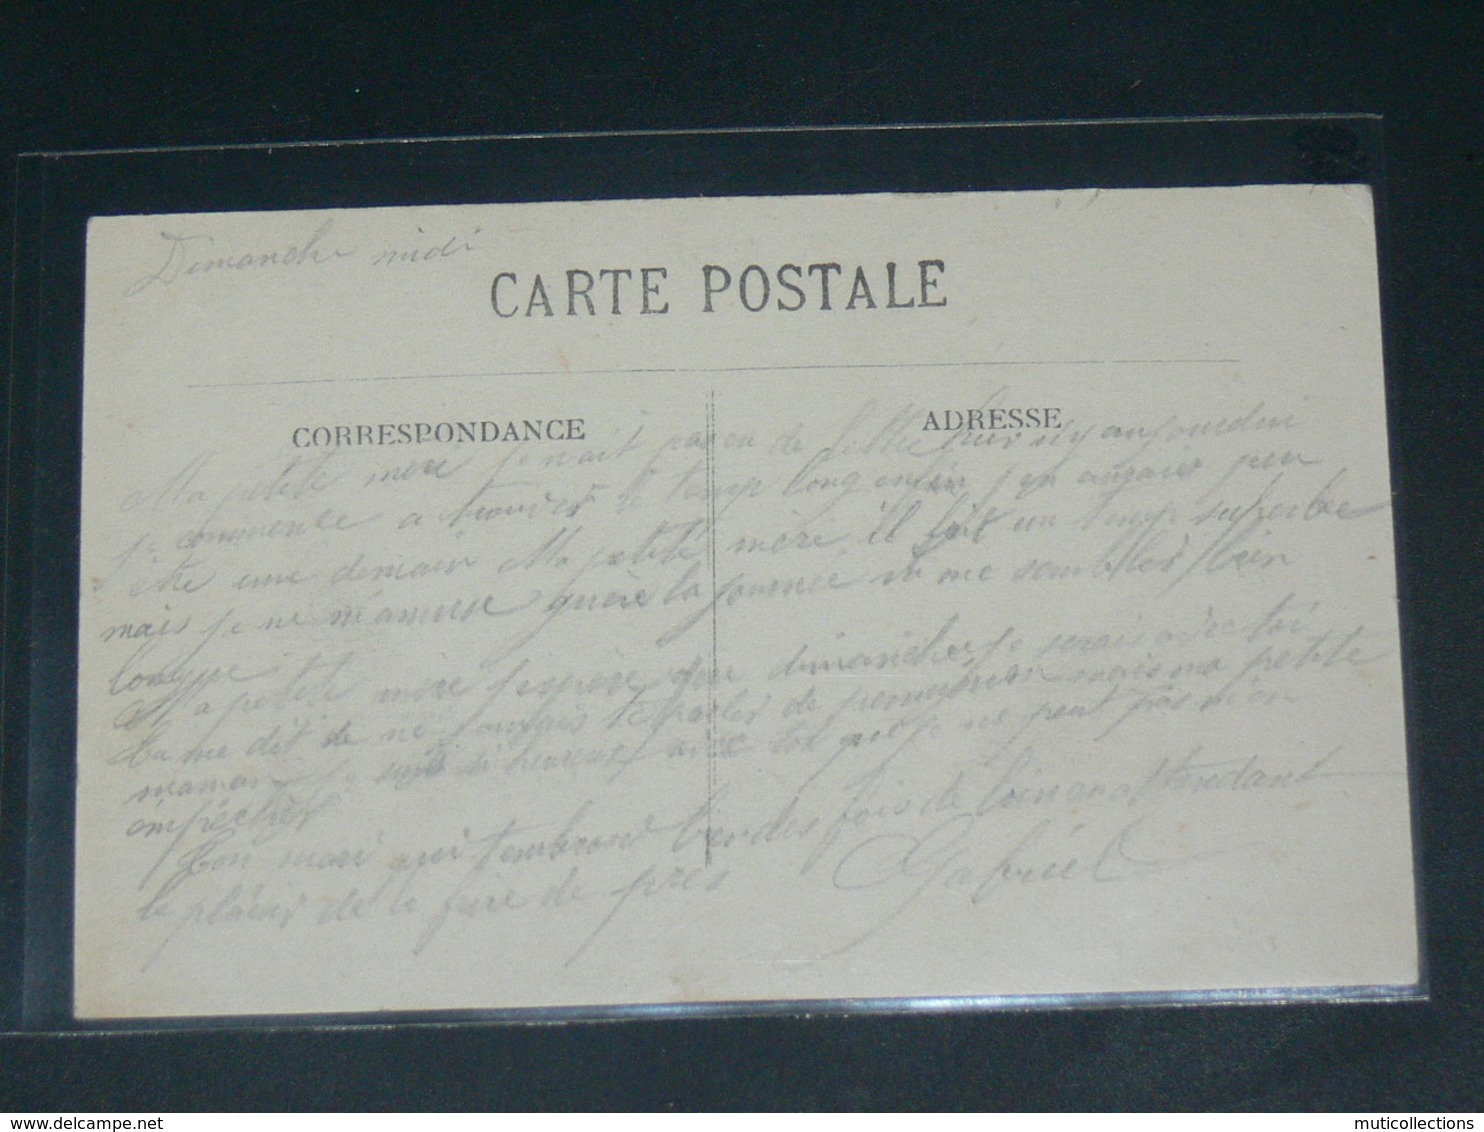 Dimanche midi
CARTE POSTALE
CORRESPONDANCE
ADRESSE
Ma petite mère je n'ait pas eu de lettre hier n'y aujourdui
je commence a trouver le temp long enfin j'en aurais peu
être une demain Ma petite mère il fait un temp superbe
mais je ne m'amuse guère la journée va me sembler bien
longue
Ma petite mère j'espère que dimanche je serais avec toi
tu me dit de ne jamais te parler de permission mais ma petite
maman je suis si heureux avec toi que je ne peut pas m'en
empêcher
Ton mari qui t'embrasse bien des fois de loin en attendant
le plaisir de le faire de près
Gabriel
www.delcampe.net
muticollections